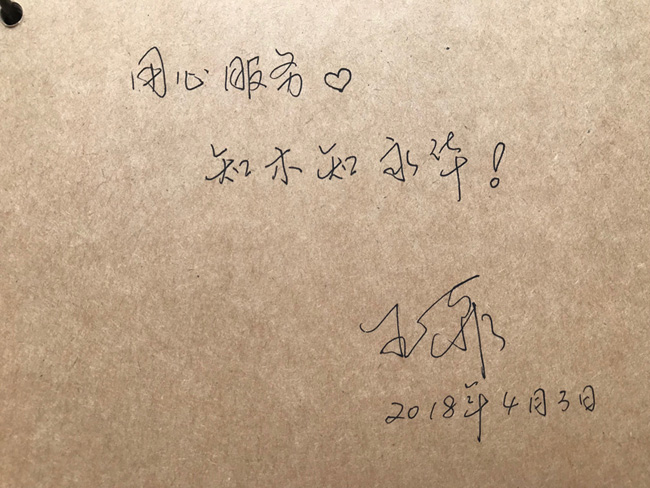 用心服务♡
知木知永华!
2018年4月3日